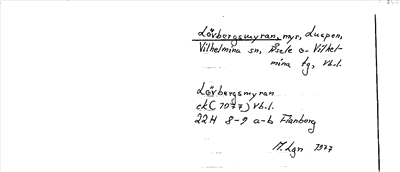 Lövbergsmyran, myr,
Vilhelmina sn, Åsele o. Vilhel-
mina tg, Vb.l.
Lövbergsmyran
ek (7077) Vb.l.
22H 8-9 a-b Flånborg
M. Lgn 1977